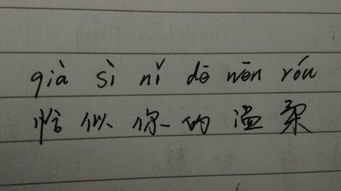 qià sì nǐ dē wēn róu
恰似你的温柔